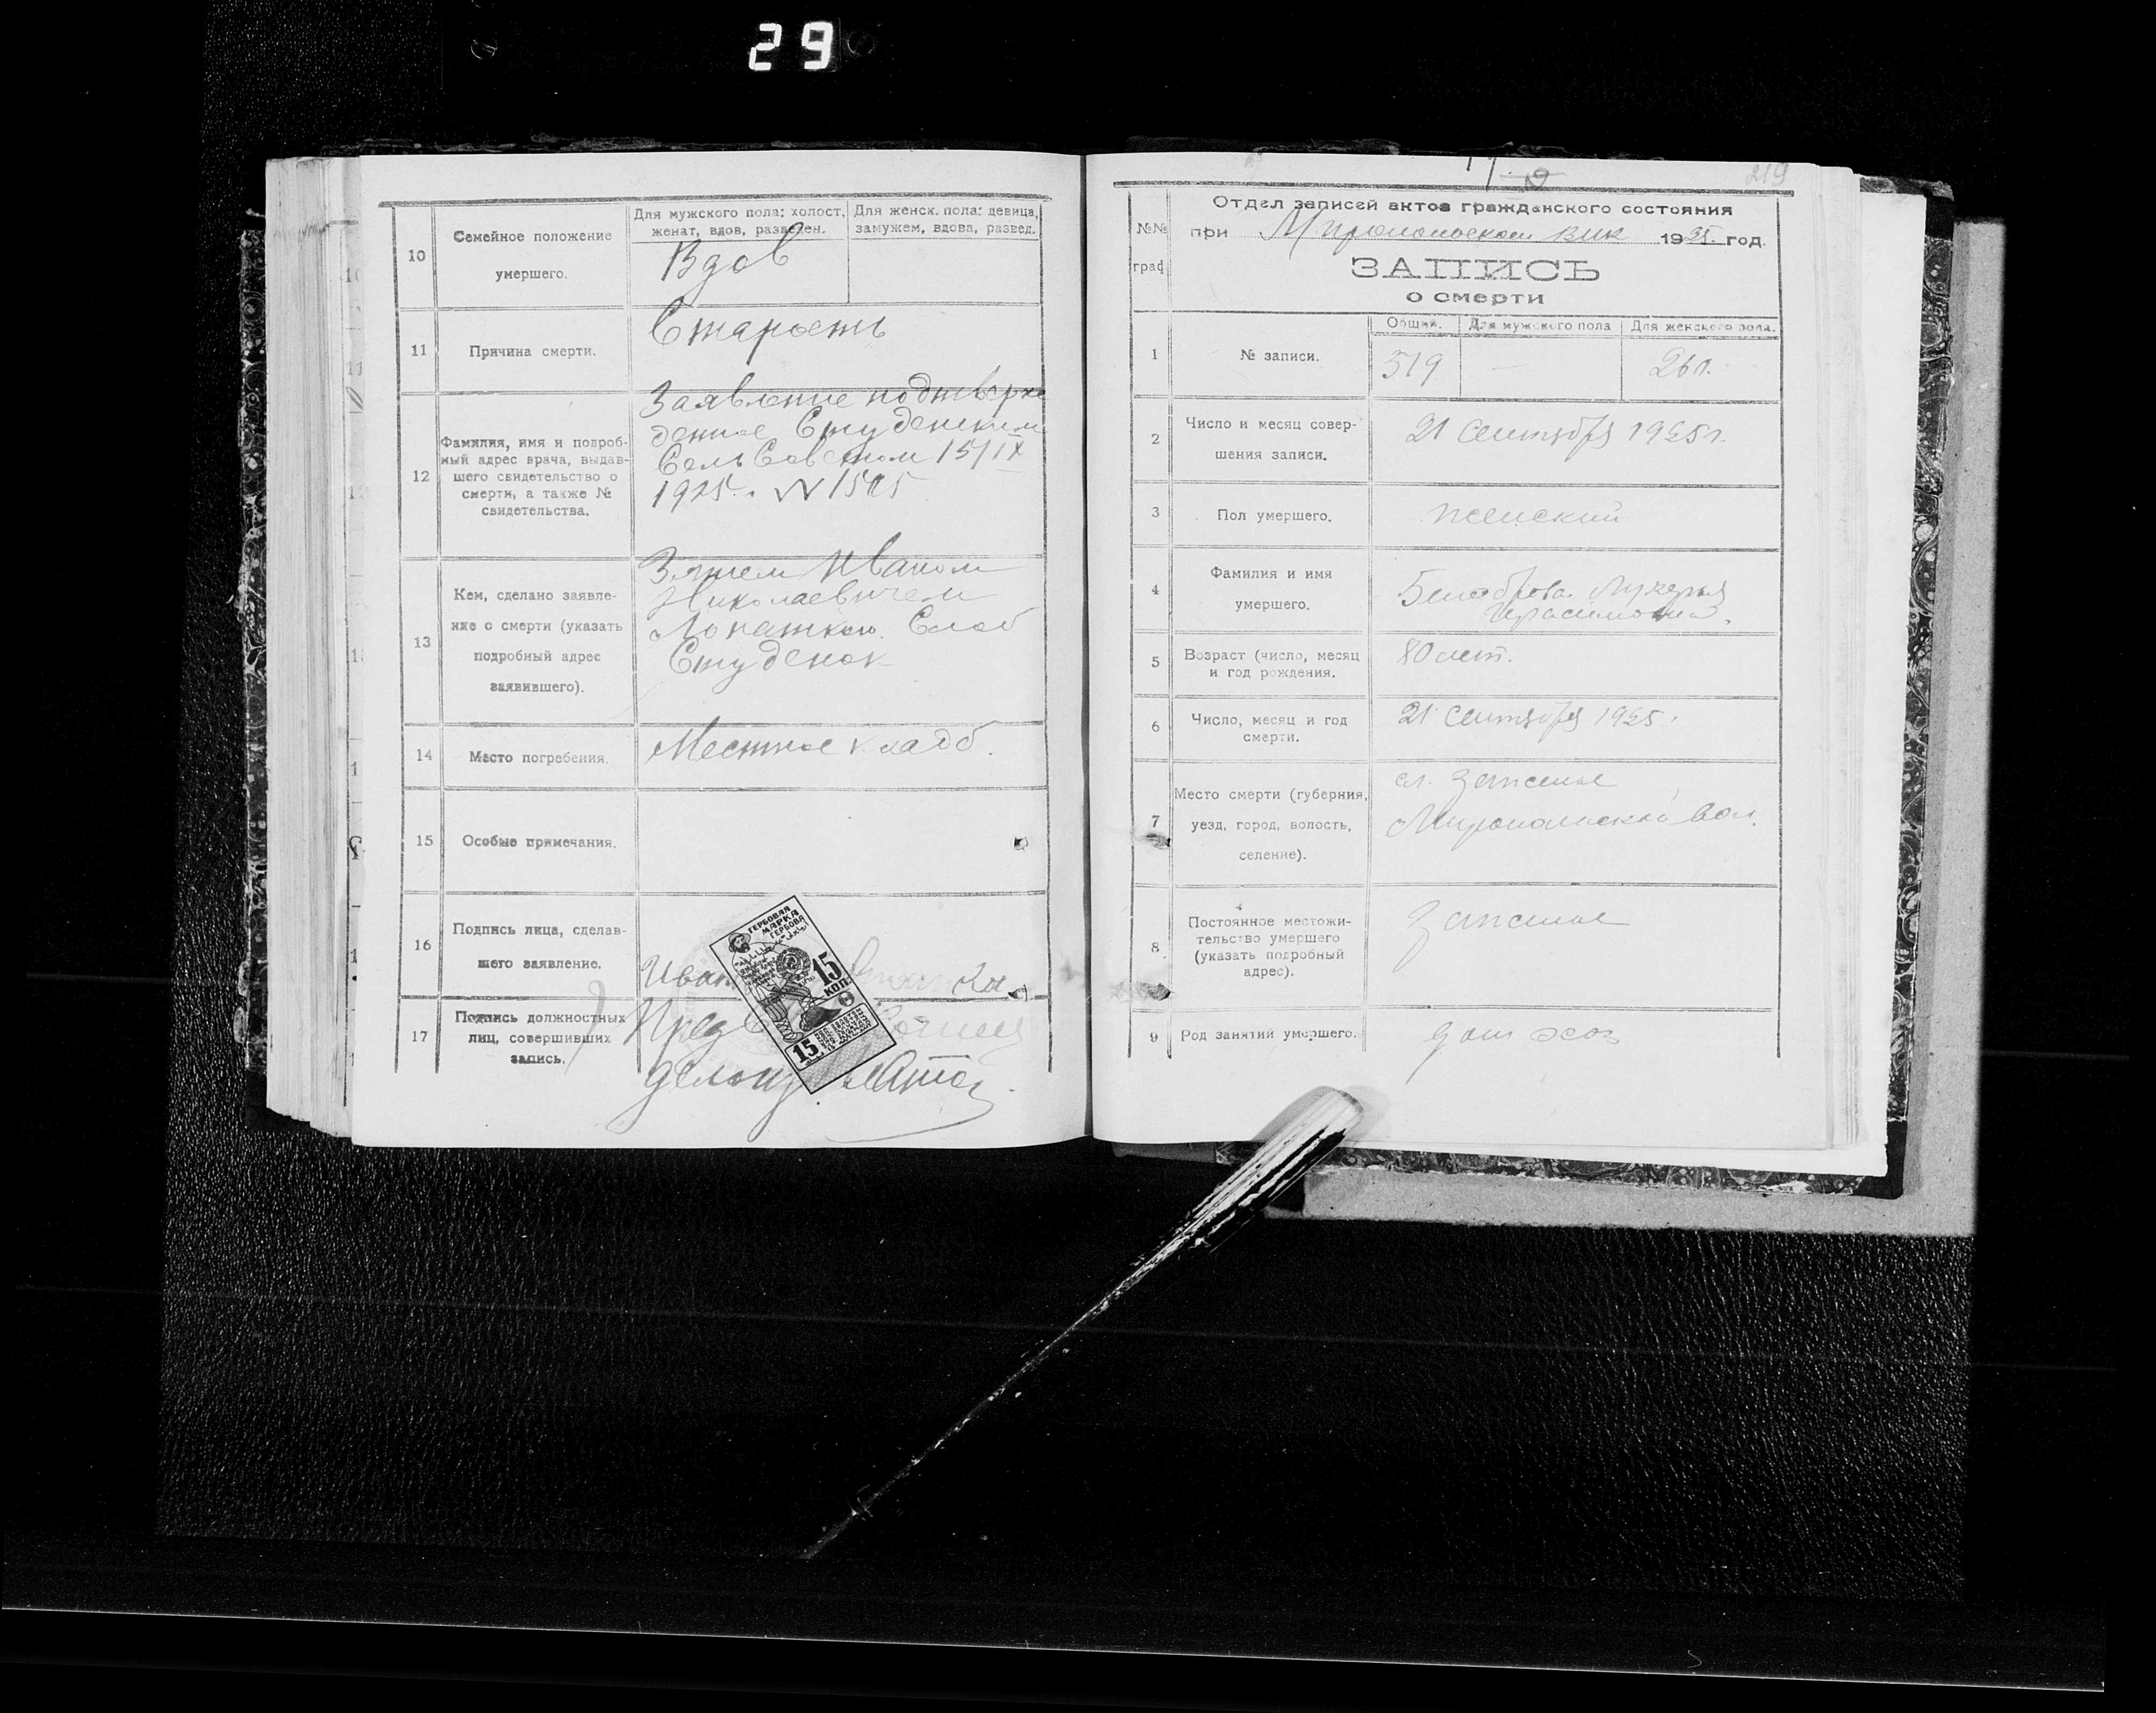 29
10
Семейное положение
умершего.
Для мужского пола: холост,
женат, вдов, разведен.
Для женск. пола: девица,
замужем, вдова, развед.
Вдов
11
Причина смерти.
Старость
12
Фамилия, имя и подроб-
ный адрес врача, выдав-
шего свидетельство о
смерти, а также №
свидетельства.
Заявление подтверж
денное Студенским
СельСоветом 15/IX
1925. N 1505
13
Кем, сделано заявле-
ние о смерти (указать
подробный адрес
заявившего).
Зятем Иваном
Николаевичем
Лопаткою. Слоб
Студенок
14
Место погребения.
Местное кладб.
15
Особые примечания.
16
Подпись лица, сделав-
шего заявление.
Иван
ГЕРБОВАЯ
МАРКА
ГЕРБОВА
15
КОП.
15
17
Подпись должностных
лиц, совершивших
запись.
Пред
219
№№
граф
Отдел записей актов гражданского состояния
при Миропольском ВИК 1925 год.
ЗАПИСЬ
о смерти
1
№ записи.
Общий.
Для мужского пола
Для женского пола.
519
—
260.
2
Число и месяц совер-
шения записи.
21 сентября 1925 г.
3
Пол умершего.
женский
4
Фамилия и имя
умершего.
Белоброва Лукерья
Герасимовна.
5
Возраст (число, месяц
и год рождения.
80 лет.
6
Число, месяц и год
смерти.
21 сентября 1925.
7
Место смерти (губерния,
уезд, город, волость,
селение).
сл. Запселье
Миропольской вол.
8
Постоянное местожи-
тельство умершего
(указать подробный
адрес).
Запселье
9
Род занятий умершего.
дом хоз